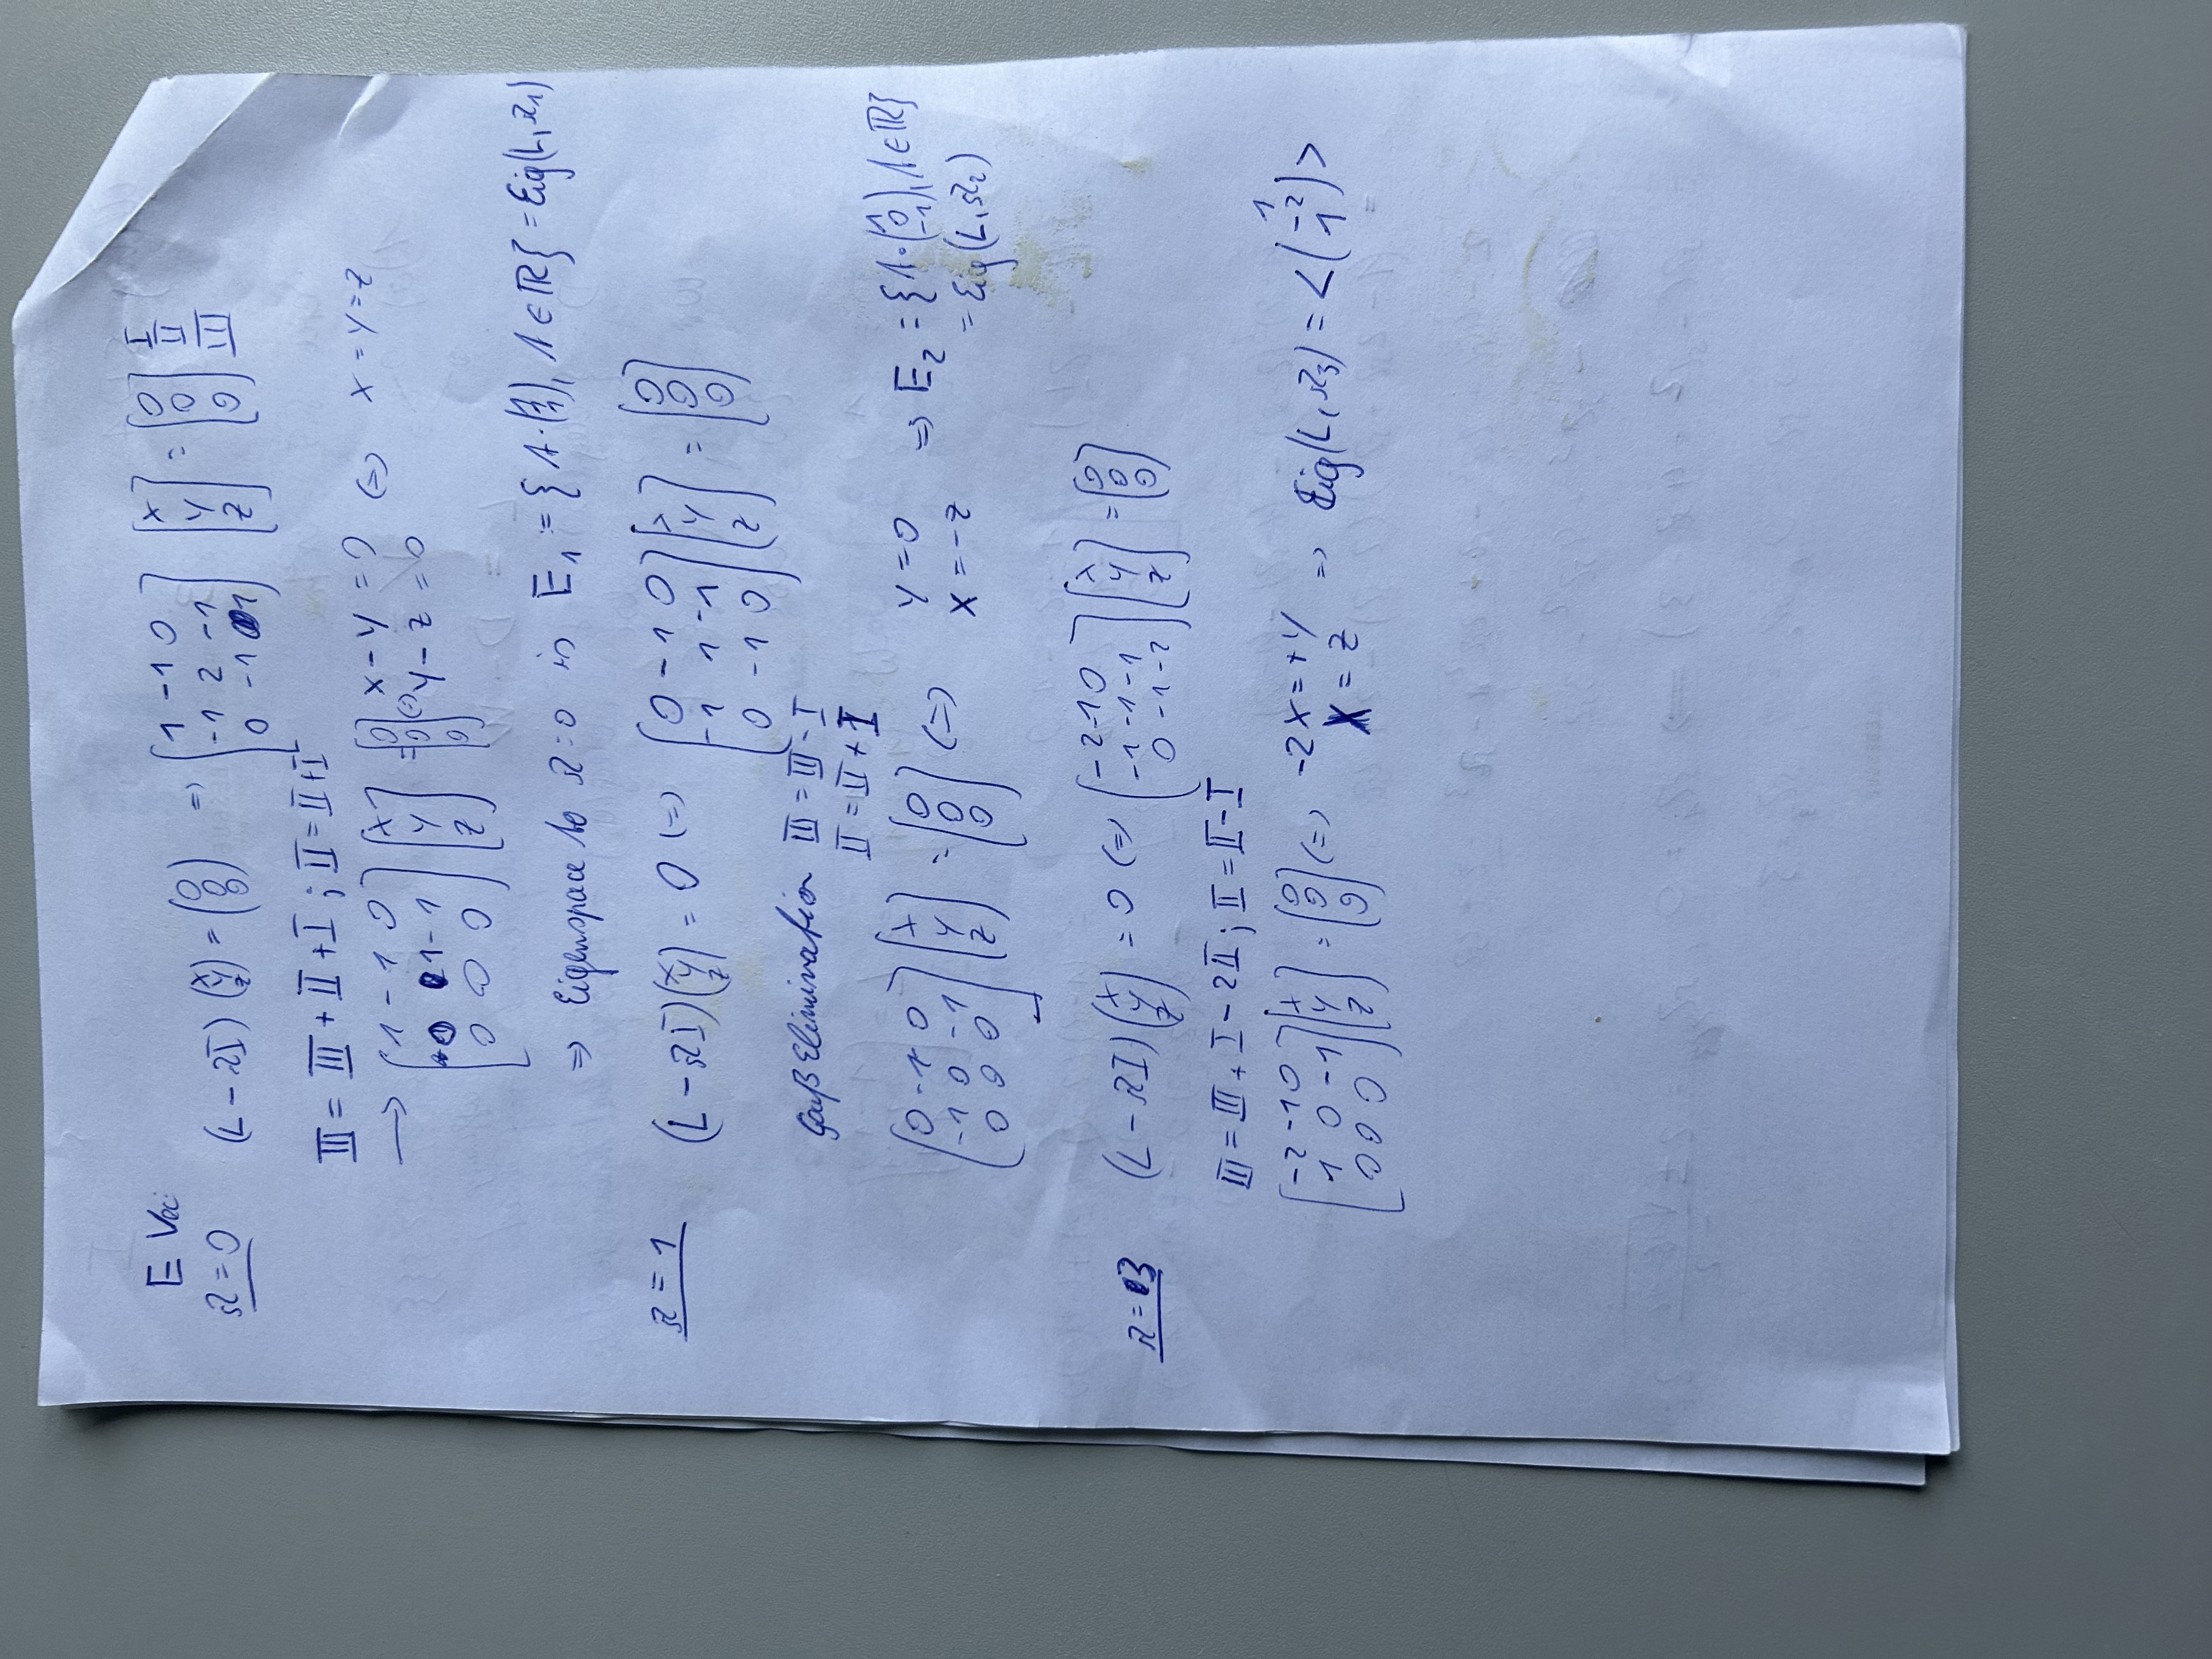 E Vec:
λ=0 (L-λI) (x y z) = (0 0 0) => [1 -1 0; -1 2 -1; 0 -1 1] [x y z] = [0 0 0] I II III
III = III + II + I ; II = II+I
→ [1 -1 0; 0 1 -1; 0 0 0] [x y z] = [0 0 0] (=) x-y=0, y-z=0 (=) x=y=z
=> Eigenspace to λ=0 is E1 := {Λ·(1 1 1), Λ∈ℝ} = Eig(L,λ1)
λ=1 (L-λI)(x y z) = 0 (=) [0 -1 0; -1 1 -1; 0 -1 0] [x y z] = [0 0 0]
Gauß Elimination III = III - I
II = II + I
[0 -1 0; -1 0 -1; 0 0 0] [x y z] = [0 0 0] (=) y=0, x=-z => E2 = {Λ·(1 0 -1), Λ∈ℝ}
= Eig(L,λ2)
λ=3 (L-λI)(x y z) = 0 (=) [-2 -1 0; -1 -1 -1; 0 -1 -2] [x y z] = [0 0 0]
III = III + I - 2II ; II = II-I
[-2 -1 0; 1 0 -1; 0 0 0] [x y z] = [0 0 0] (=) -2x=+y, x=z => Eig(L,λ3) = <(1 -2 1)>